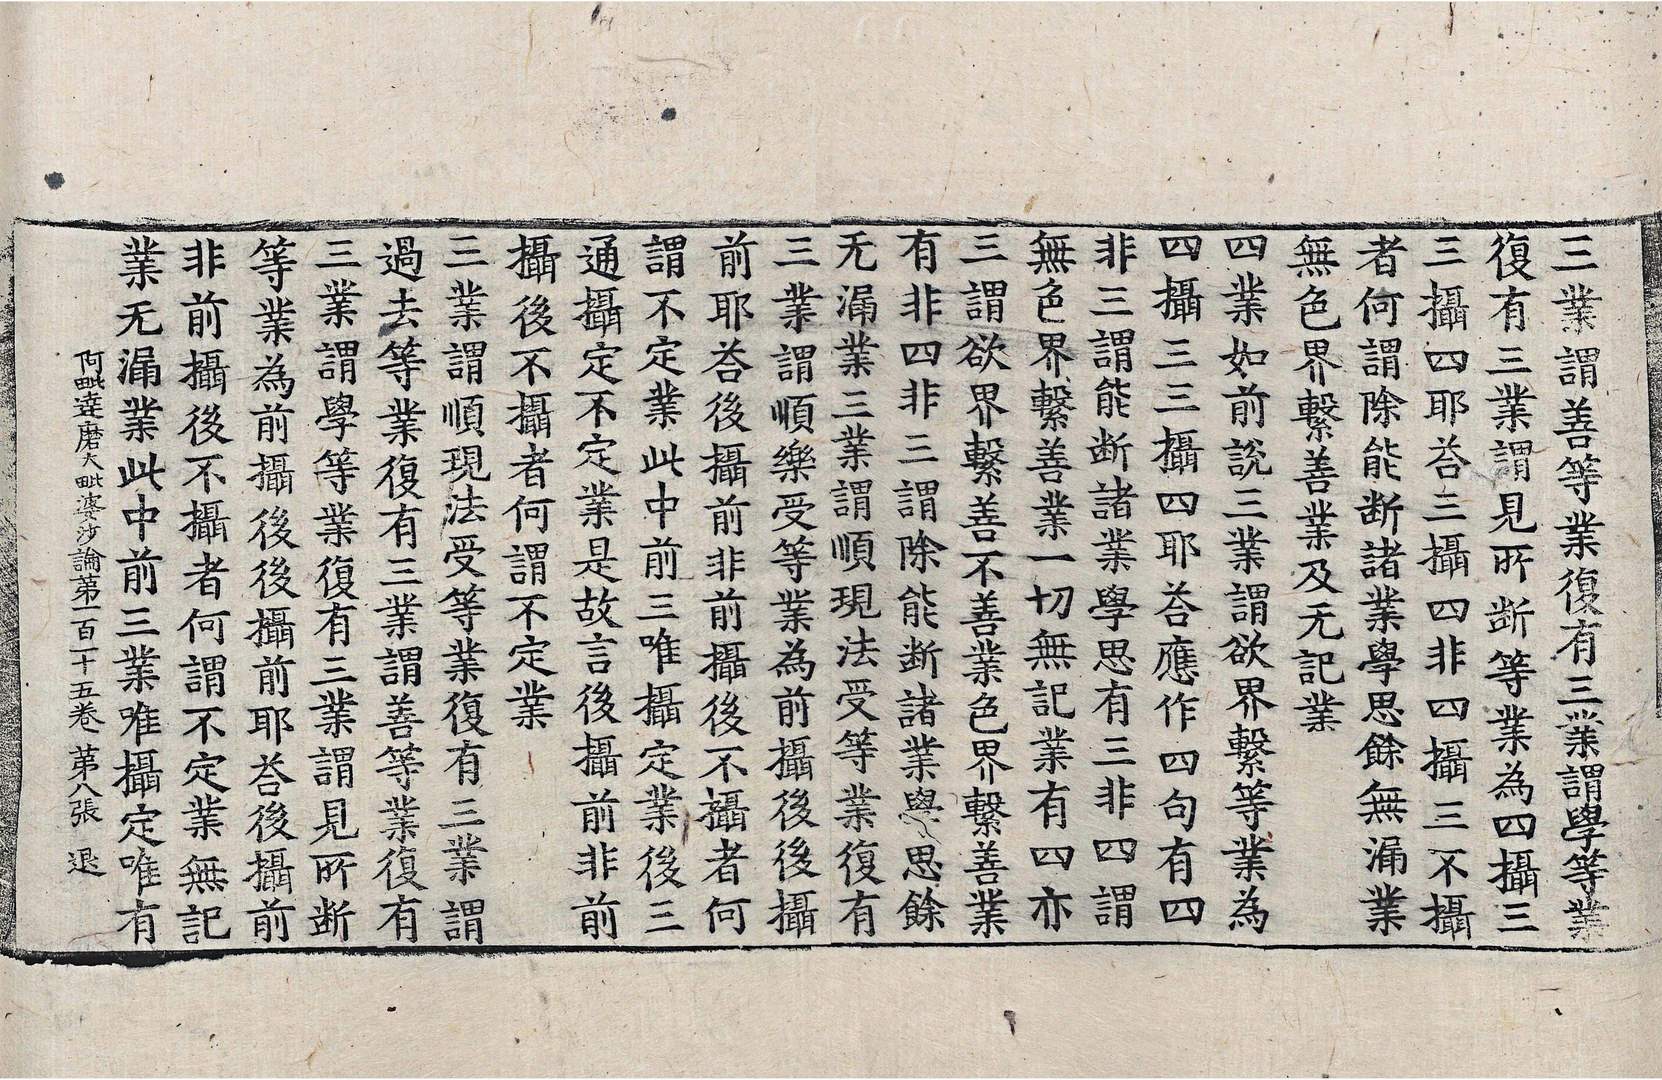 三業謂善等業復有三業謂學等業
復有三業謂見所断等業為四攝三
三攝四耶荅三攝四非四攝三不攝
者何謂除能断諸業學思餘無漏業
無色界繫善業及无記業
四業如前說三業謂欲界繫等業為
四攝三三攝四耶荅應作四句有四
非三謂能断諸業學思有三非四謂
無色界繫善業一切無記業有四亦
三謂欲界繫善不善業色界繫善業
有非四非三謂除能断諸業學思餘
无漏業三業謂順現法受等業復有
三業謂順樂受等業為前攝後後攝
前耶荅後攝前非前攝後不攝者何
謂不定業此中前三唯攝定業後三
通攝定不定業是故言後攝前非前
攝後不攝者何謂不定業
三業謂順現法受等業復有三業謂
過去等業復有三業謂善等業復有
三業謂學等業復有三業謂見所断
等業為前攝後後攝前耶荅後攝前
非前攝後不攝者何謂不定業無記
業无漏業此中前三業唯攝定唯有
阿毗達磨大毗婆沙論第一百一十五卷 第八張 退